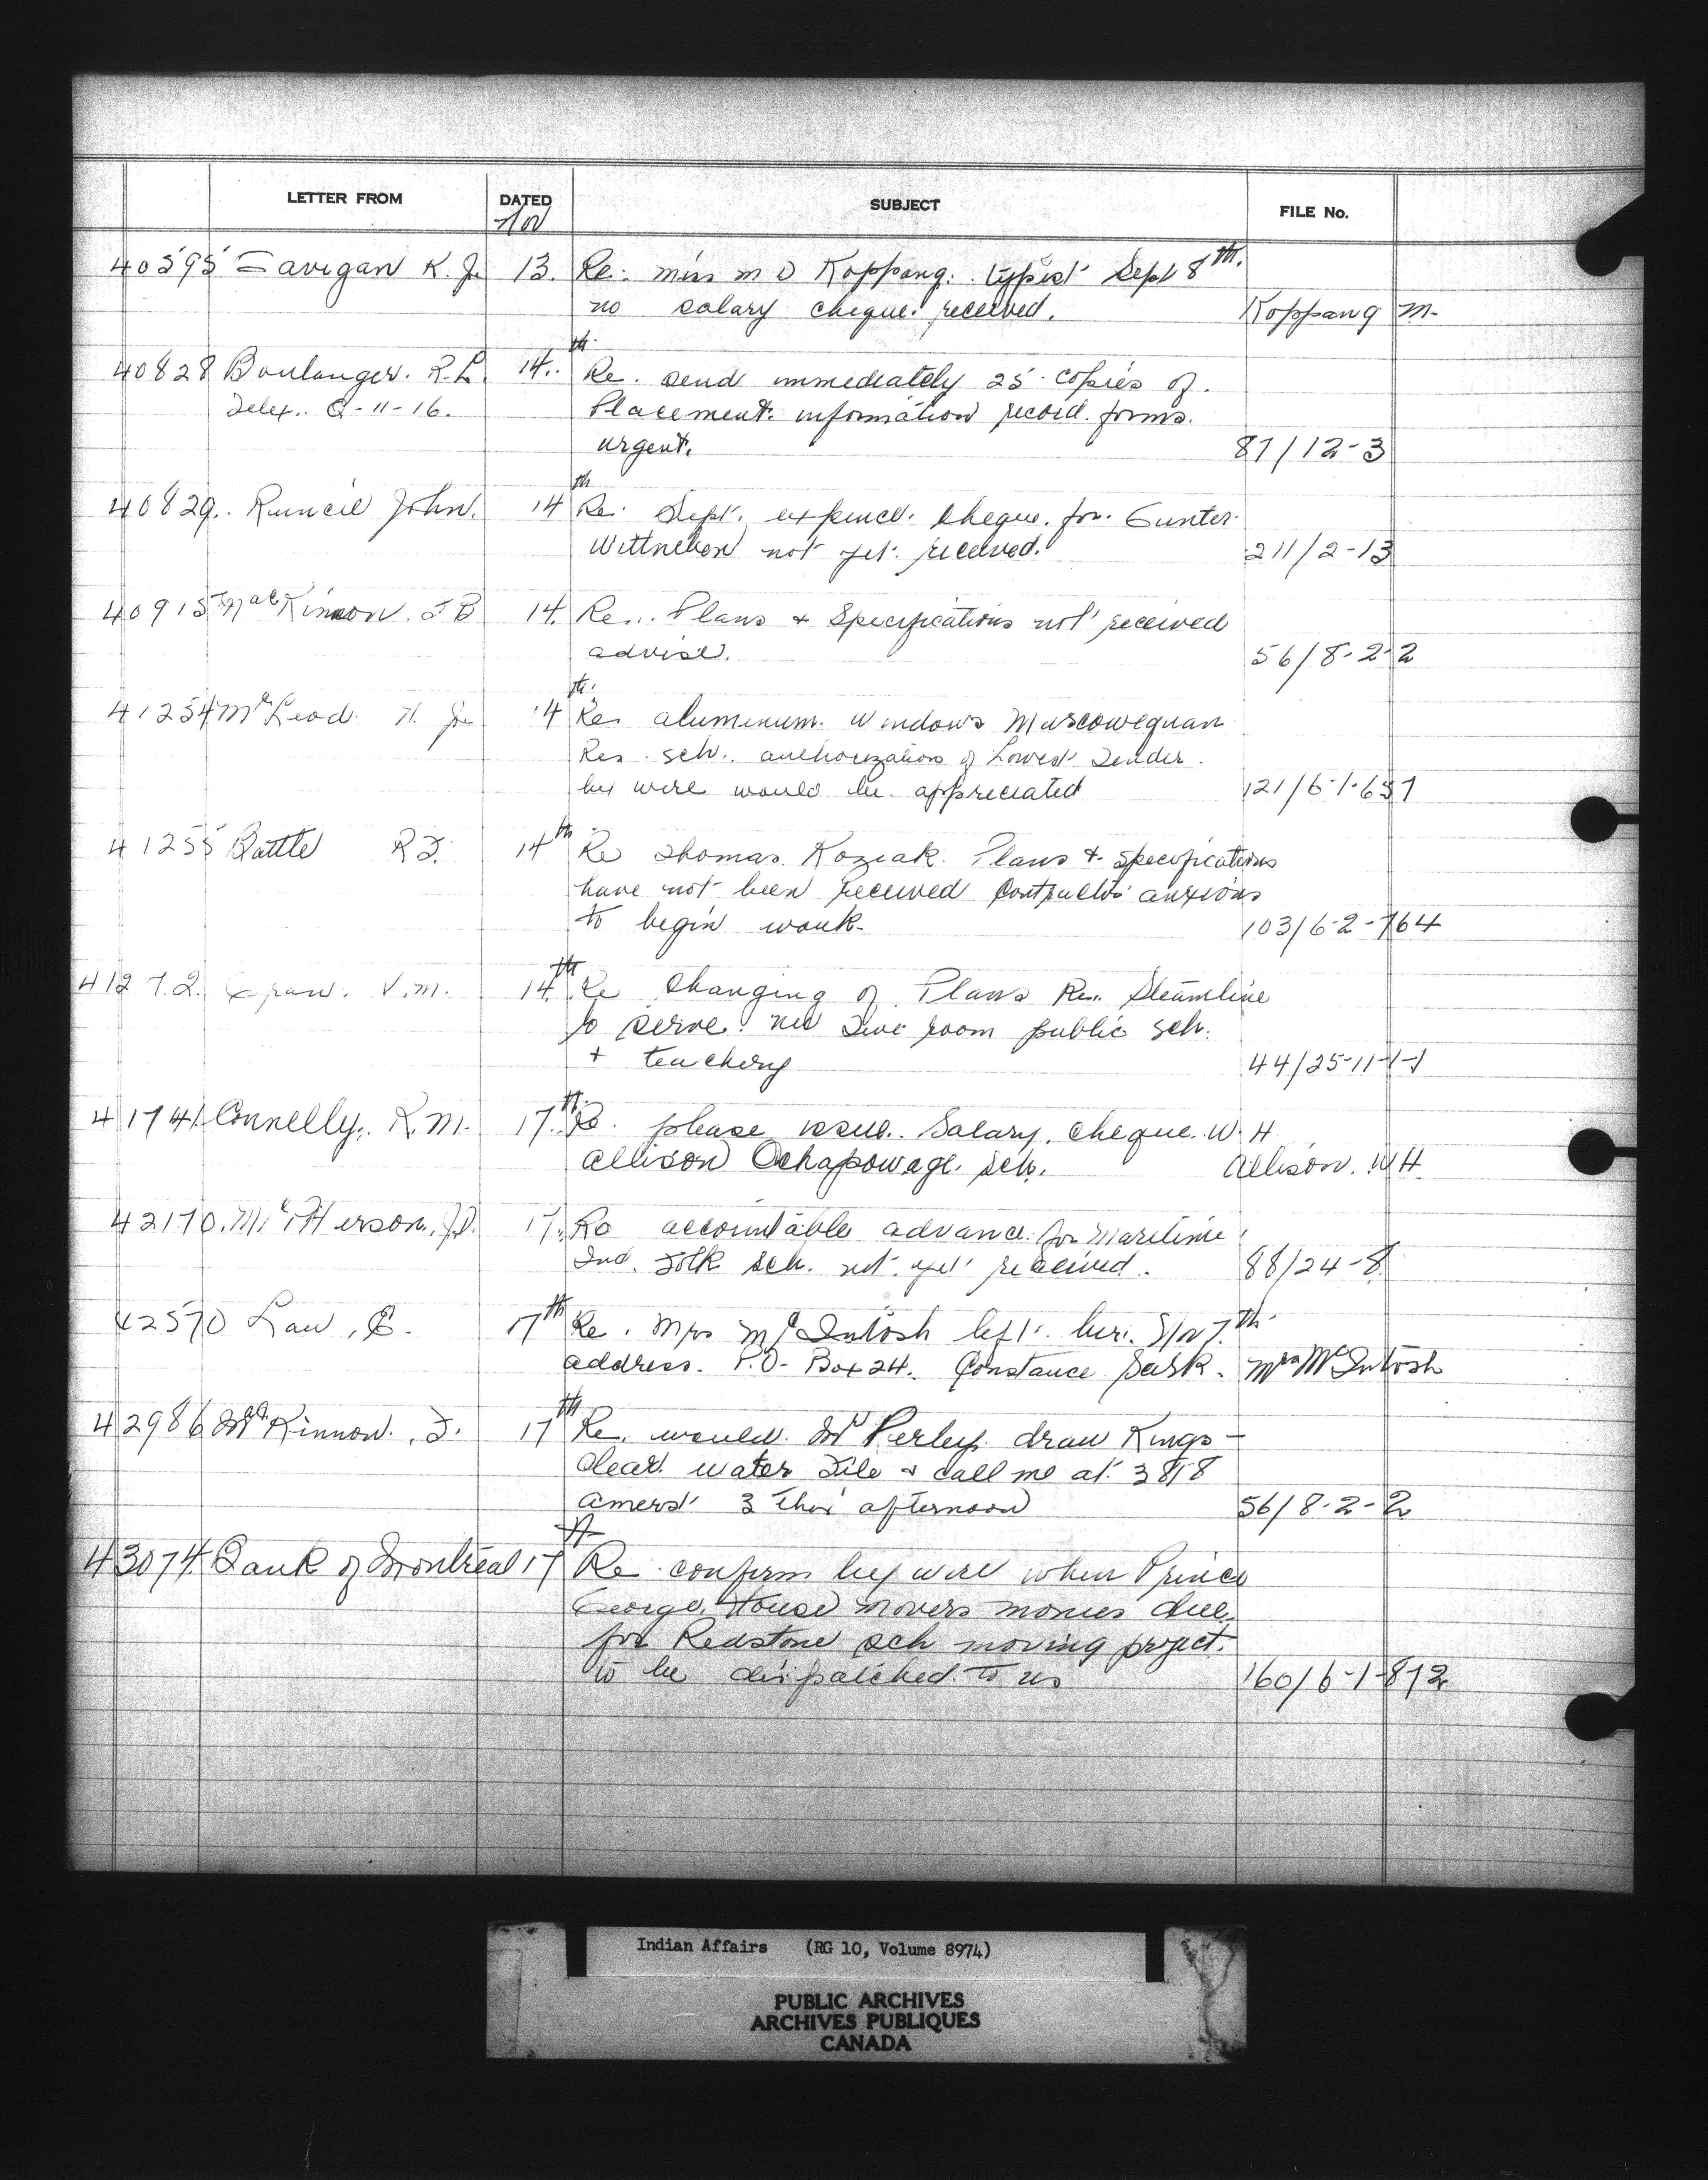 LETTER FROM DATED SUBJECT FILE No.
Nov
40595 Gavigan K. J. 13. Re: miss m D Koppang. typist Sept 8th.
no salary cheque received. Koppang m.
40828 Boulanger. R.L. 14th Re. send immediately 25 copies of.
Telex. Q-11-16. Placement. information record. forms.
urgent. 87/12-3
40829. Runcie John. 14th Re. Sept. expence. cheque. for. Gunter
Wittneben not yet received. 211/2-13
40915 MacKinnon. J B 14. Re. Plans & Specifications not received
advise. 56/8-2-2
41254 McLeod H. J. 14th Re aluminum. windows Muscowequan
Res. sch. authorization of Lowest Tender.
by wire would be appreciated 121/6-1-657
41255 Battle R.F. 14th Re Thomas Koziak. Plans & specifications
have not been received Contractor anxious
to begin work. 103/6-2-764
41272. V.M. 14th Re Changing of Plans Re. Steamline
to serve. new Two room public sch.
+ 44/25-11-1-1
41741 Connelly. R.M. 17th Re. please issue. Salary. cheque. W. H
Allison Ochapowage. sch. Allison. W H.
42170. McPherson. J.D. 17. Re accountable advance. for Maritime
Ind. Folk Sch. not yet received. 88/24-8
42570 Law, E. 17th Re. Mrs McIntosh left. Nov 7.th
address. P.O. Box 24. Constance Sask. Mrs McIntosh
42986 MacKinnon. J. 17th Re. would Mr Perley. draw Kings-
clear. water File & call me at 3818
Amerst 3 this afternoon 56/8-2-2
43074. Bank of Montreal 17th Re confirm by wire when Prince
George. House movers monies due.
for Redstone sch moving project.
to be dispatched to us 160/6-1-872
Indian Affairs (RG 10, Volume 8974)
PUBLIC ARCHIVES
ARCHIVES PUBLIQUES
CANADA